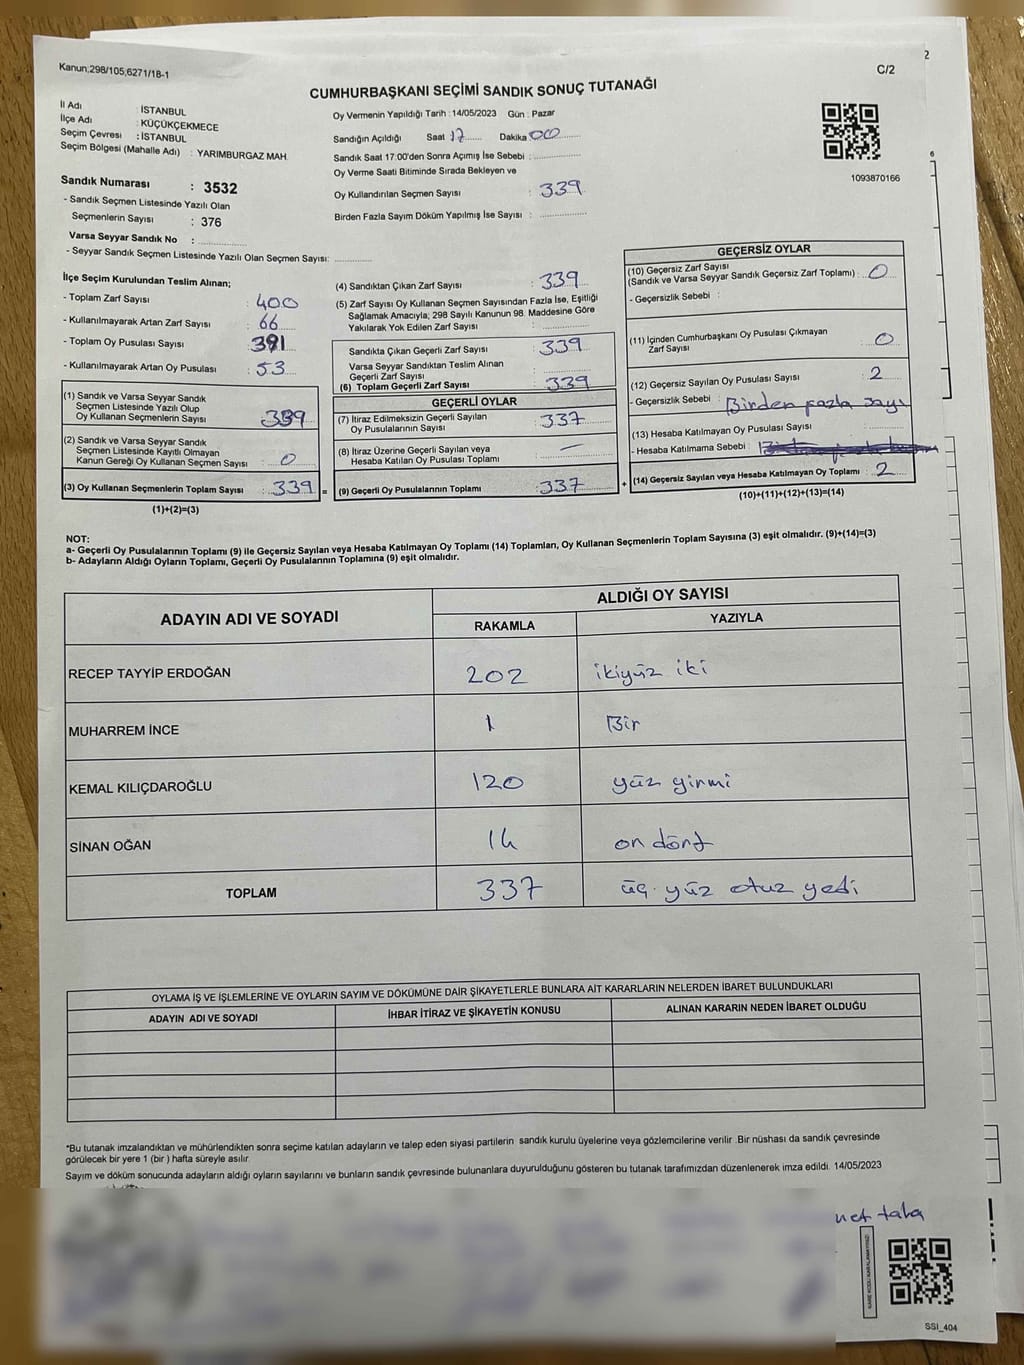 2
Kanun;298/105;6271/18-1
C/2
CUMHURBAŞKANI SEÇİMİ SANDIK SONUÇ TUTANAĞI
İl Adı : İSTANBUL
İlçe Adı : KÜÇÜKÇEKMECE
Seçim Çevresi : İSTANBUL
Seçim Bölgesi (Mahalle Adı) : YARIMBURGAZ MAH.
Sandık Numarası : 3532
- Sandık Seçmen Listesinde Yazılı Olan
Seçmenlerin Sayısı : 376
Varsa Seyyar Sandık No :
- Seyyar Sandık Seçmen Listesinde Yazılı Olan Seçmen Sayısı:
Oy Vermenin Yapıldığı Tarih : 14/05/2023 Gün : Pazar
Sandığın Açıldığı Saat 17 Dakika 00
Sandık Saat 17:00'den Sonra Açımış İse Sebebi :
Oy Verme Saati Bitiminde Sırada Bekleyen ve
Oy Kullandırılan Seçmen Sayısı : 339
Birden Fazla Sayım Döküm Yapılmış İse Sayısı :
1093870166
6
İlçe Seçim Kurulundan Teslim Alınan;
- Toplam Zarf Sayısı : 400
- Kullanılmayarak Artan Zarf Sayısı : 66
- Toplam Oy Pusulası Sayısı : 391
- Kullanılmayarak Artan Oy Pusulası : 53
(1) Sandık ve Varsa Seyyar Sandık
Seçmen Listesinde Yazılı Olup
Oy Kullanan Seçmenlerin Sayısı : 339
(2) Sandık ve Varsa Seyyar Sandık
Seçmen Listesinde Kayıtlı Olmayan
Kanun Gereği Oy Kullanan Seçmen Sayısı : 0
(3) Oy Kullanan Seçmenlerin Toplam Sayısı : 339 =
(1)+(2)=(3)
(4) Sandıktan Çıkan Zarf Sayısı : 339
(5) Zarf Sayısı Oy Kullanan Seçmen Sayısından Fazla İse, Eşitliği
Sağlamak Amacıyla; 298 Sayılı Kanunun 98. Maddesine Göre
Yakılarak Yok Edilen Zarf Sayısı :
Sandıkta Çıkan Geçerli Zarf Sayısı : 339
Varsa Seyyar Sandıktan Teslim Alınan
Geçerli Zarf Sayısı :
(6) Toplam Geçerli Zarf Sayısı : 339
GEÇERLİ OYLAR
(7) İtiraz Edilmeksizin Geçerli Sayılan
Oy Pusulalarının Sayısı : 337
(8) İtiraz Üzerine Geçerli Sayılan veya
Hesaba Katılan Oy Pusulası Toplamı : —
(9) Geçerli Oy Pusulalarının Toplamı : 337 +
GEÇERSİZ OYLAR
(10) Geçersiz Zarf Sayısı
(Sandık ve Varsa Seyyar Sandık Geçersiz Zarf Toplamı) : 0
- Geçersizlik Sebebi :
(11) İçinden Cumhurbaşkanı Oy Pusulası Çıkmayan
Zarf Sayısı : 0
(12) Geçersiz Sayılan Oy Pusulası Sayısı : 2
- Geçersizlik Sebebi : Birden fazla sayı
(13) Hesaba Katılmayan Oy Pusulası Sayısı :
- Hesaba Katılmama Sebebi :
(14) Geçersiz Sayılan veya Hesaba Katılmayan Oy Toplamı : 2
(10)+(11)+(12)+(13)=(14)
NOT:
a- Geçerli Oy Pusulalarının Toplamı (9) ile Geçersiz Sayılan veya Hesaba Katılmayan Oy Toplamı (14) Toplamları, Oy Kullanan Seçmenlerin Toplam Sayısına (3) eşit olmalıdır. (9)+(14)=(3)
b- Adayların Aldığı Oyların Toplamı, Geçerli Oy Pusulalarının Toplamına (9) eşit olmalıdır.
ADAYIN ADI VE SOYADI
ALDIĞI OY SAYISI
RAKAMLA YAZIYLA
RECEP TAYYİP ERDOĞAN 202 ikiyüz iki
MUHARREM İNCE 1 Bir
KEMAL KILIÇDAROĞLU 120 yüz yirmi
SİNAN OĞAN 14 on dört
TOPLAM 337 üç yüz otuz yedi
OYLAMA İŞ VE İŞLEMLERİNE VE OYLARIN SAYIM VE DÖKÜMÜNE DAİR ŞİKAYETLERLE BUNLARA AİT KARARLARIN NELERDEN İBARET BULUNDUKLARI
ADAYIN ADI VE SOYADI İHBAR İTİRAZ VE ŞİKAYETİN KONUSU ALINAN KARARIN NEDEN İBARET OLDUĞU
*Bu tutanak imzalandıktan ve mühürlendikten sonra seçime katılan adayların ve talep eden siyasi partilerin sandık kurulu üyelerine veya gözlemcilerine verilir .Bir nüshası da sandık çevresinde
görülecek bir yere 1 (bir ) hafta süreyle asılır.
Sayım ve döküm sonucunda adayların aldığı oyların sayılarını ve bunların sandık çevresinde bulunanlara duyurulduğunu gösteren bu tutanak tarafımızdan düzenlenerek imza edildi. 14/05/2023
net taha
KARE KODU KARALAMAYINIZ!
SSİ_404